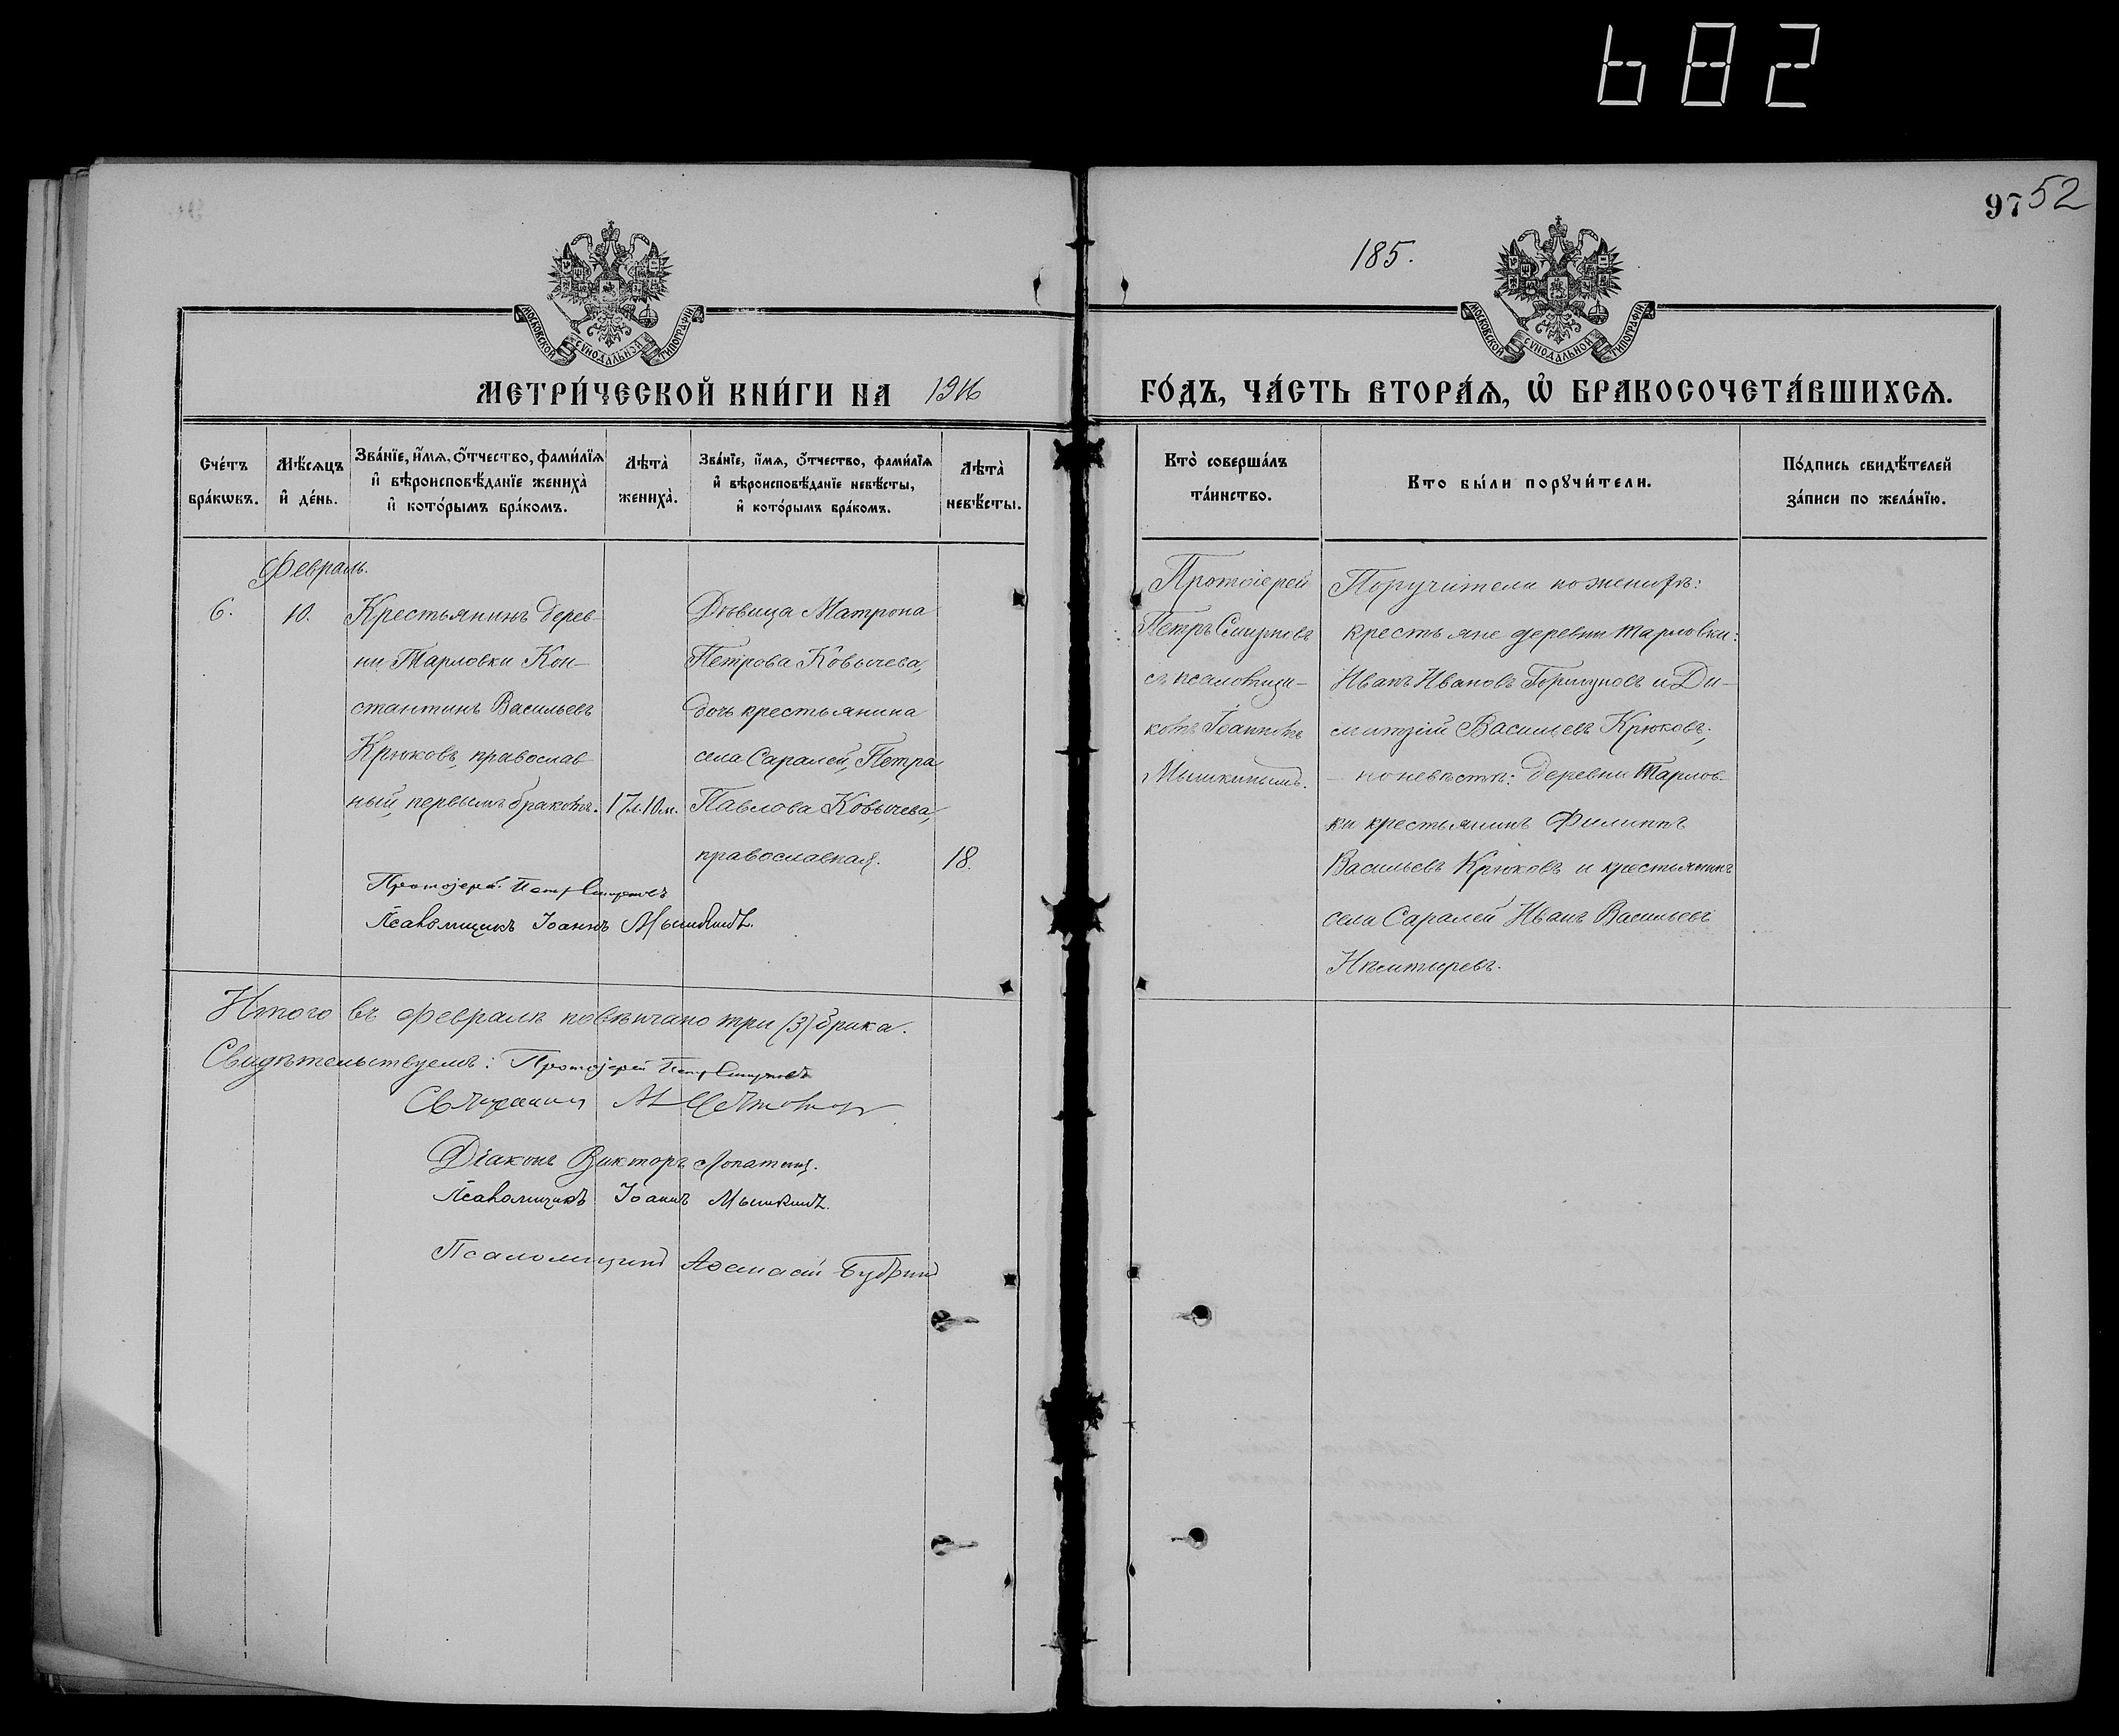 682
97 52
185.
МОСКОВСКОЙ СУНОДАЛЬНОЙ ТИПОГРАФІИ
МОСКОВСКОЙ СУНОДАЛЬНОЙ ТИПОГРАФІИ
МЕТРИ́ЧЕСКОЙ КНИ́ГИ НА 1916
ГО́ДЪ, ЧА́СТЬ ВТОРА́Я, Ѡ҆ БРАКОСОЧЕТА́ВШИХСЯ.
Сче́тъ
бра́кѡвъ.
Мѣ́сяцъ
и҆ де́нь.
Зва́нїе, и҆́мя, ѻ҆́тчество, фами́лїя
и҆ вѣроисповѣ́данїе жениха̀
и҆ кото́рымъ бра́комъ.
Лѣта̀
жениха̀.
Зва́нїе, и҆́мя, ѻ҆́тчество, фами́лїя
и҆ вѣроисповѣ́данїе невѣ́сты,
и҆ кото́рымъ бра́комъ.
Лѣта̀
невѣ́сты.
Кто̀ соверша́лъ
та́инство.
Кто бы́ли порꙋчи́тели.
По́дпись свидѣ́телей
за́писи по жела́нїю.
Февраль.
6.
10.
Крестьянинъ дерев-
ни Тарловки Кон-
стантинъ Васильевъ
Крюковъ, православ-
ный, первымъ бракомъ.
17л.10м.
Дѣвица Матрона
Петрова Ковычева,
дочь крестьянина
села Саралей, Петра
Павлова Ковычева,
православная.
18.
Протоіерей
Петръ Смирновъ
съ псаломщи-
комъ Іоанномъ
Мышкинымъ.
Поручители по женихѣ:
крестьяне деревни Тарловки:
Иванъ Ивановъ и Ди-
митрій Васильевъ Крюковъ;
— по невѣстѣ: деревни Тарлов-
ки крестьянинъ Филиппъ
Васильевъ Крюковъ и крестьянинъ
села Саралей Иванъ Васильевъ
Протоіерей Петръ Смирновъ
Псаломщикъ Іоаннъ Мышкинъ.
Итого въ февралѣ повѣнчано три (3) брака.
Свидѣтельствуемъ: Протоіерей Петръ Смирновъ
Священникъ
Діаконъ Викторъ Лопатинъ.
Псаломщикъ Іоаннъ Мышкинъ.
Псаломщикъ Аѳанасій